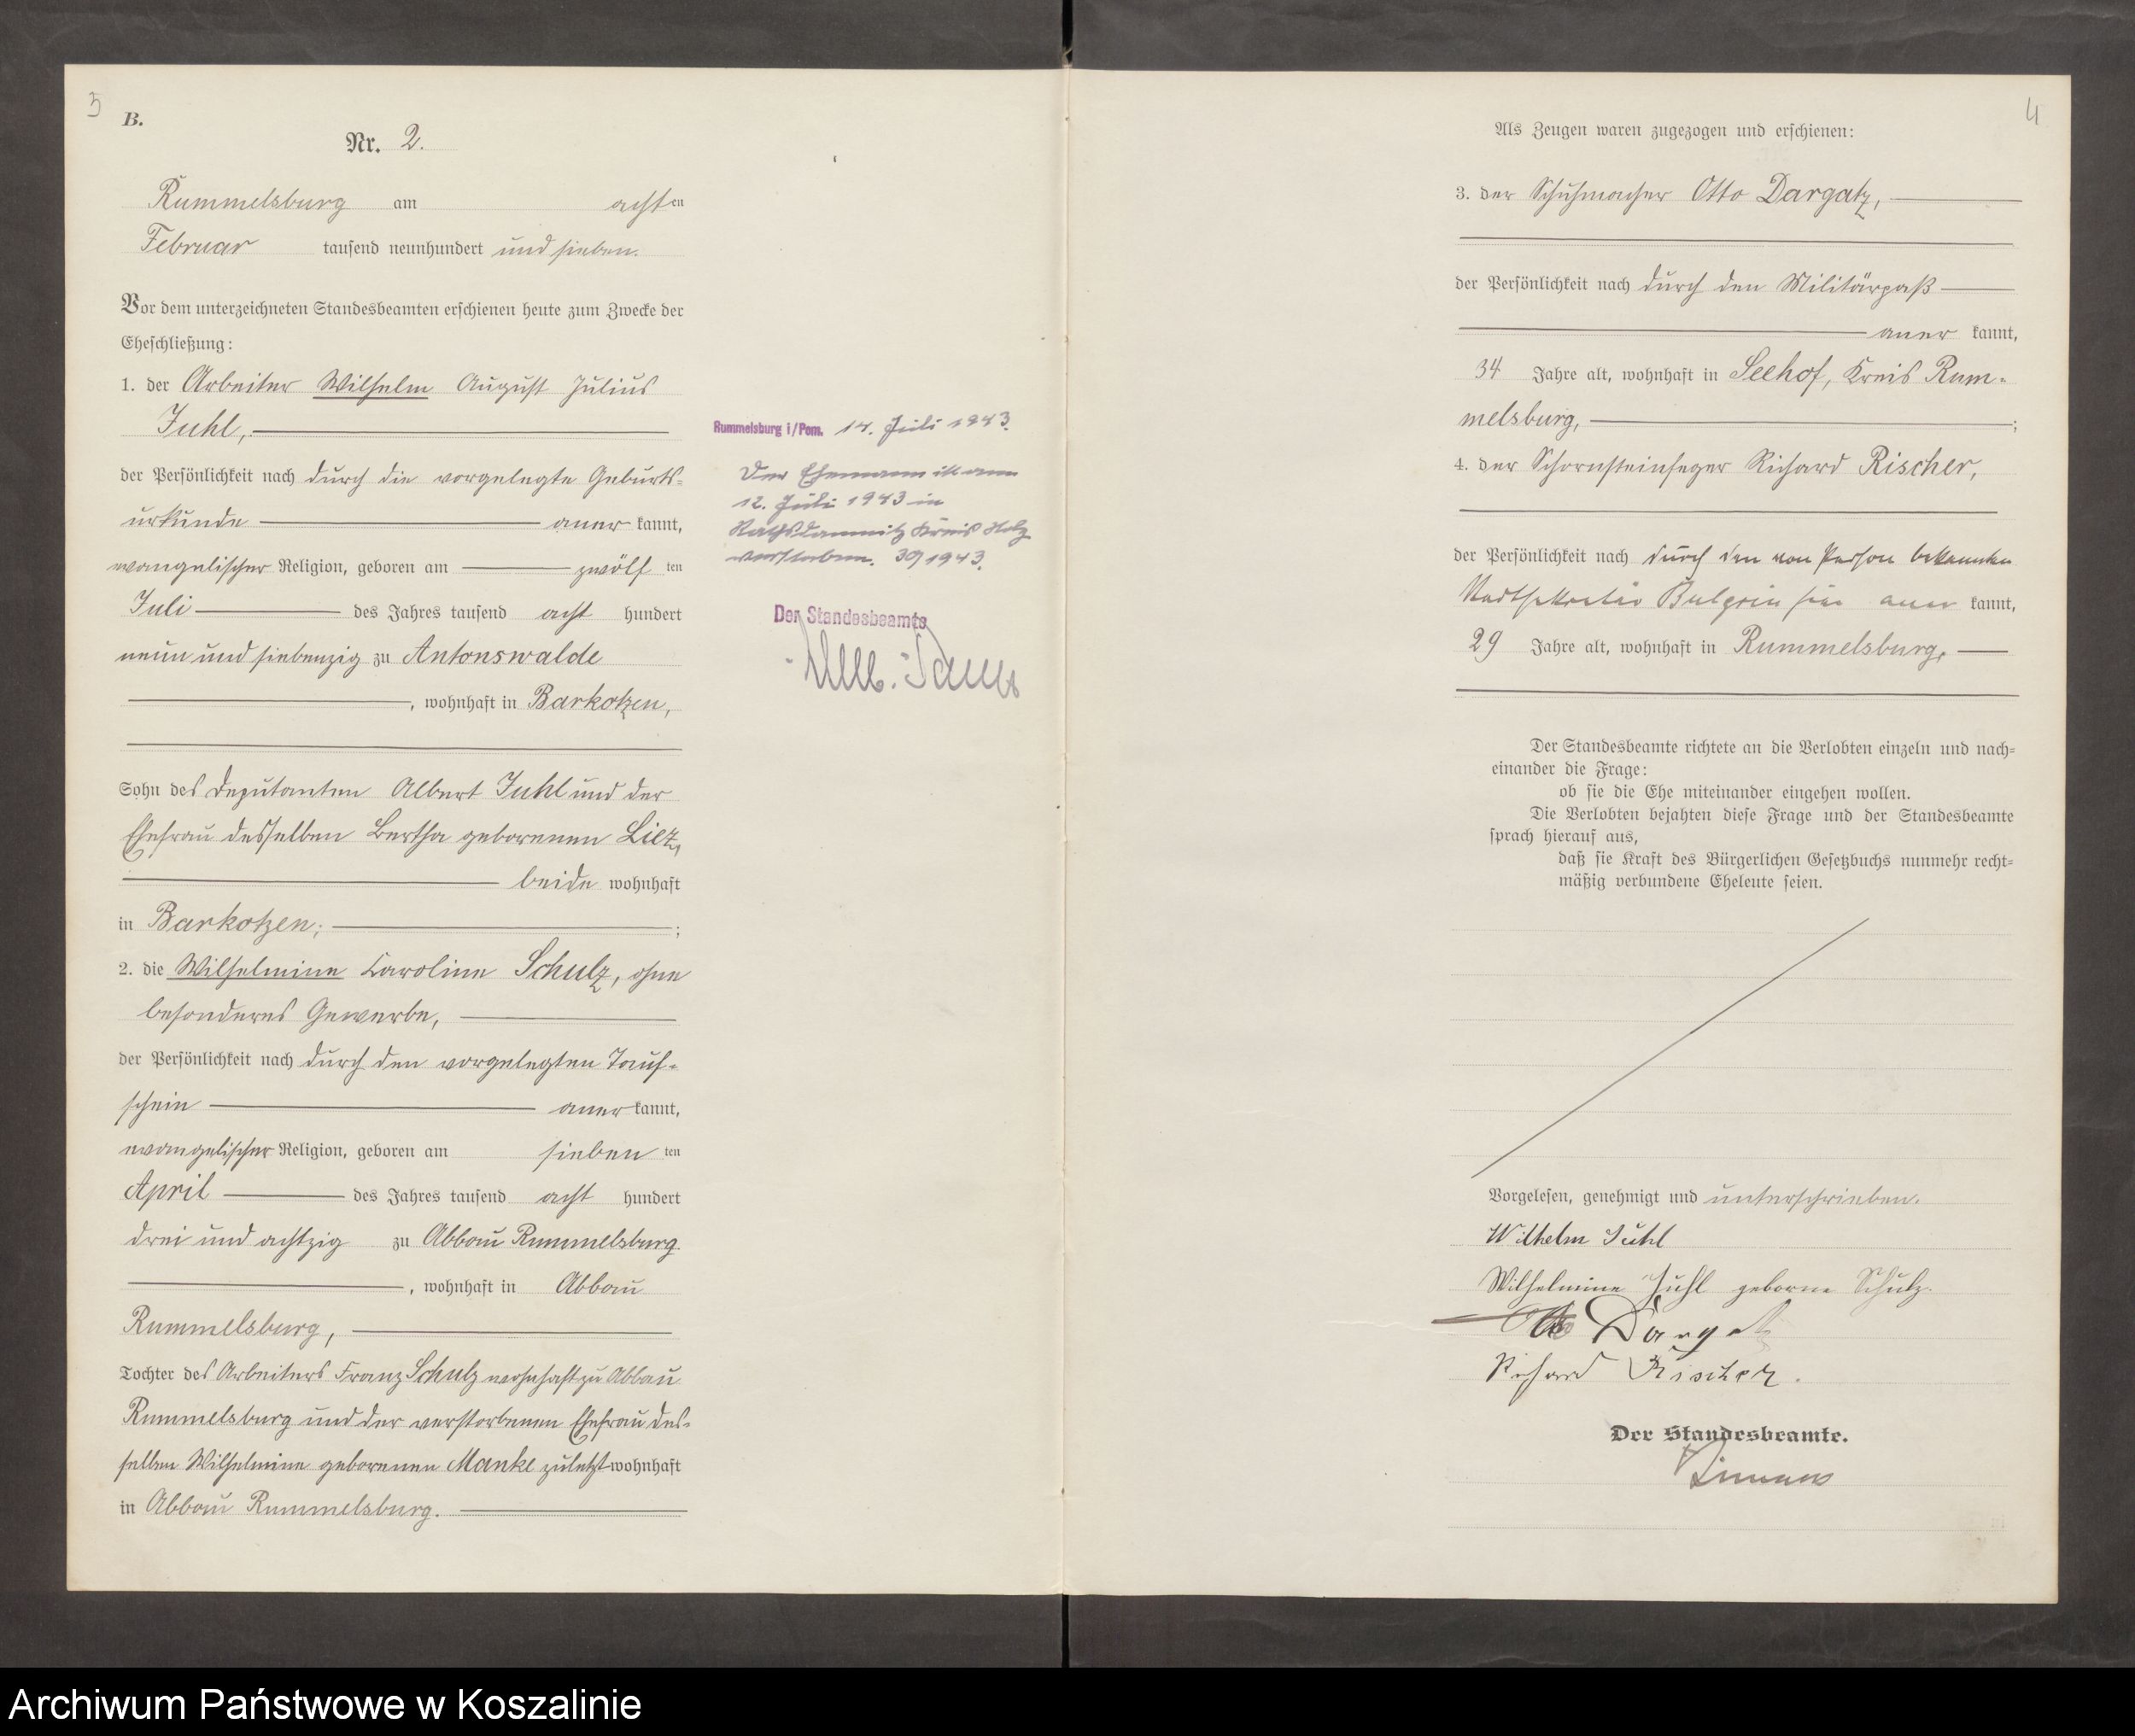 5
B.
Nr. 2.
Rummelsburg am achten
Februar tausend neunhundert und sieben.
Vor dem unterzeichneten Standesbeamten erschienen heute zum Zwecke der
Eheschließung:
1. der Arbeiter Wilhelm August Julius
Juhl,
der Persönlichkeit nach durch die vorgelegte Geburts-
urkunde anerkannt,
evangelischer Religion, geboren am zwölften
Juli des Jahres tausend acht hundert
neun und siebenzig zu Antonswalde
, wohnhaft in Barkotzen,
Sohn des Deputanten Albert Juhl und der
Ehefrau desselben Bertha geborenen Liez,
beide wohnhaft
in Barkotzen; ;
2. die Wilhelmine Caroline Schulz, ohne
besonderes Gewerbe,
der Persönlichkeit nach durch den vorgelegten Tauf-
schein anerkannt,
evangelischer Religion, geboren am siebenten
April des Jahres tausend acht hundert
drei und achtzig zu Abbau Rummelsburg
, wohnhaft in Abbau
Rummelsburg,
Tochter des Arbeiters Franz Schulz wohnhaft zu Abbau
Rummelsburg und der verstorbenen Ehefrau des-
selben Wilhelmine geborenen Manke zuletzt wohnhaft
in Abbau Rummelsburg.
Rummelsburg i/Pom. 14. Juli 1943.
Der Ehemann ist am
12. Juli 1943 in
Rathsdamnitz Kreis Stolp
verstorben. 39/1943.
Der Standesbeamte
4
Als Zeugen waren zugezogen und erschienen:
3. der Schuhmacher Otto Dargatz,
der Persönlichkeit nach durch den Militärpaß
anerkannt,
34 Jahre alt, wohnhaft in Seehof, Kreis Rum-
melsburg, ;
4. der Schornsteinfeger Richard Rischer,
der Persönlichkeit nach durch den von Person bekannten
Stadtsekretär Bulgrin hier anerkannt,
29 Jahre alt, wohnhaft in Rummelsburg,
Der Standesbeamte richtete an die Verlobten einzeln und nach-
einander die Frage:
ob sie die Ehe miteinander eingehen wollen.
Die Verlobten bejahten diese Frage und der Standesbeamte
sprach hierauf aus,
daß sie Kraft des Bürgerlichen Gesetzbuchs nunmehr recht-
mäßig verbundene Eheleute seien.
Vorgelesen, genehmigt und unterschrieben.
Wilhelm Juhl
Wilhelmine Juhl geborne Schulz.
Otto Dargatz
Richard Rischer.
Der Standesbeamte.
Archiwum Państwowe w Koszalinie